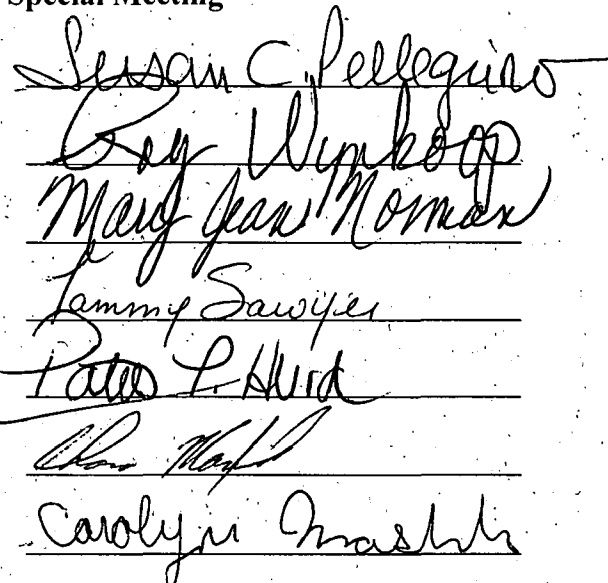 Special Meeting
Susan C. Pellegrino
Roy Wynkoop
Mary Jean Norman
Tammy Sawyer
P. Hurd
Carolyn